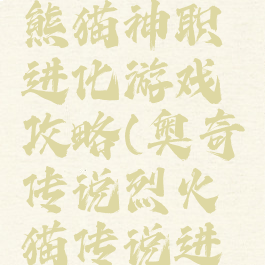 熊猫神职
进化游戏
攻略(奥奇
传说烈火
猫传说进